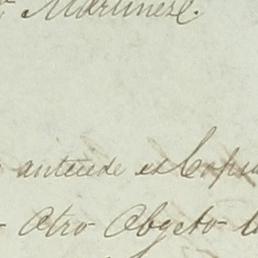 Martinez.
antecede es Copia
Otro Obgeto